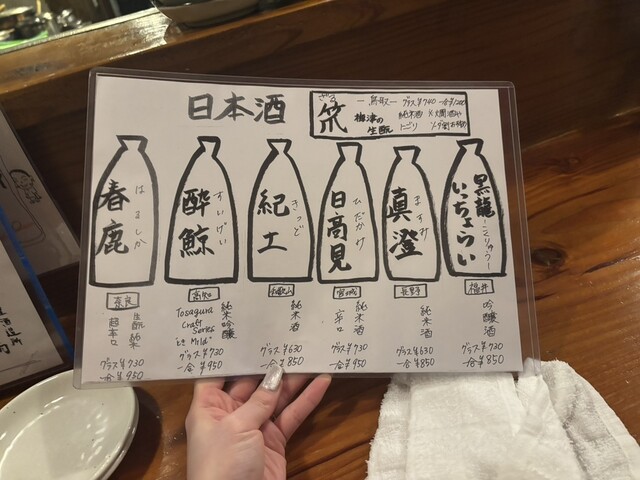 日本酒
ざる
笊
一鳥取一 グラス¥740
梅津の
生酛
純米酒
にごり
春鹿
はるしか
奈良
生酛純米
超辛口
グラス¥730
一合¥950
酔鯨
すいげい
高知
純米吟醸
Tosagura
Craft
Series
"Mild"
グラス¥730
一合¥950
紀土
きっど
和歌山
純米酒
グラス¥630
一合¥850
日高見
ひだかみ
宮城
純米酒
辛口
グラス¥730
一合¥950
真澄
ますみ
長野
純米酒
グラス¥730
一合¥950
黒龍
ーこくりゅうー
いっちょらい
福井
吟醸酒
グラス¥730
一合¥850